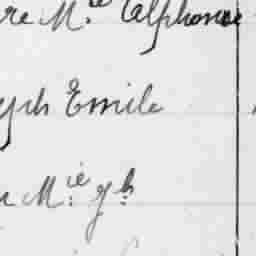 re M.ie Alphonse
ph Emile
M.ie Jh